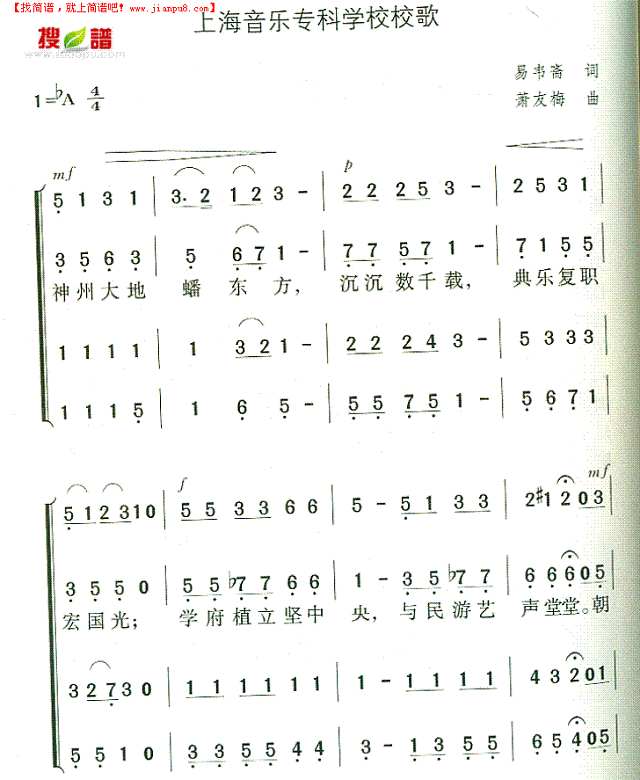 【找简谱，就上简谱吧! www.jianpu8.com】
搜谱
www.sooopu.com
上海音乐专科学校校歌
易韦斋 词
1=♭A 4/4
萧友梅 曲
mf p
5 1 3 1 | 3. 2 1 2 3 - | 2 2 2 5 3 - | 2 5 3 1
3 5 6 3 | 5 6 7 1 - | 7 7 5 7 1 - | 7 1 5 5
神州大地 蟠东方， 沉沉数千载， 典乐复职
1 1 1 1 | 1 3 2 1 - | 2 2 2 4 3 - | 5 3 3 3
1 1 1 5 | 1 6 5 - | 5 5 7 5 1 - | 5 6 7 1
f mf
5 1 2 3 1 0 | 5 5 3 3 6 6 | 5 - 5 1 3 3 | 2 #1 2 0 3
3 5 5 0 | 5 5 ♭7 7 6 6 | 1 - 3 5 ♭7 7 | 6 6 6 0 5
宏国光； 学府植立坚中 央，与民游艺 声堂堂。朝
3 2 7 3 0 | 1 1 1 1 1 1 | 1 - 1 1 1 1 | 4 3 2 0 1
5 5 1 0 | 3 3 5 5 4 4 | 3 - 1 3 5 5 | 6 5 4 0 5